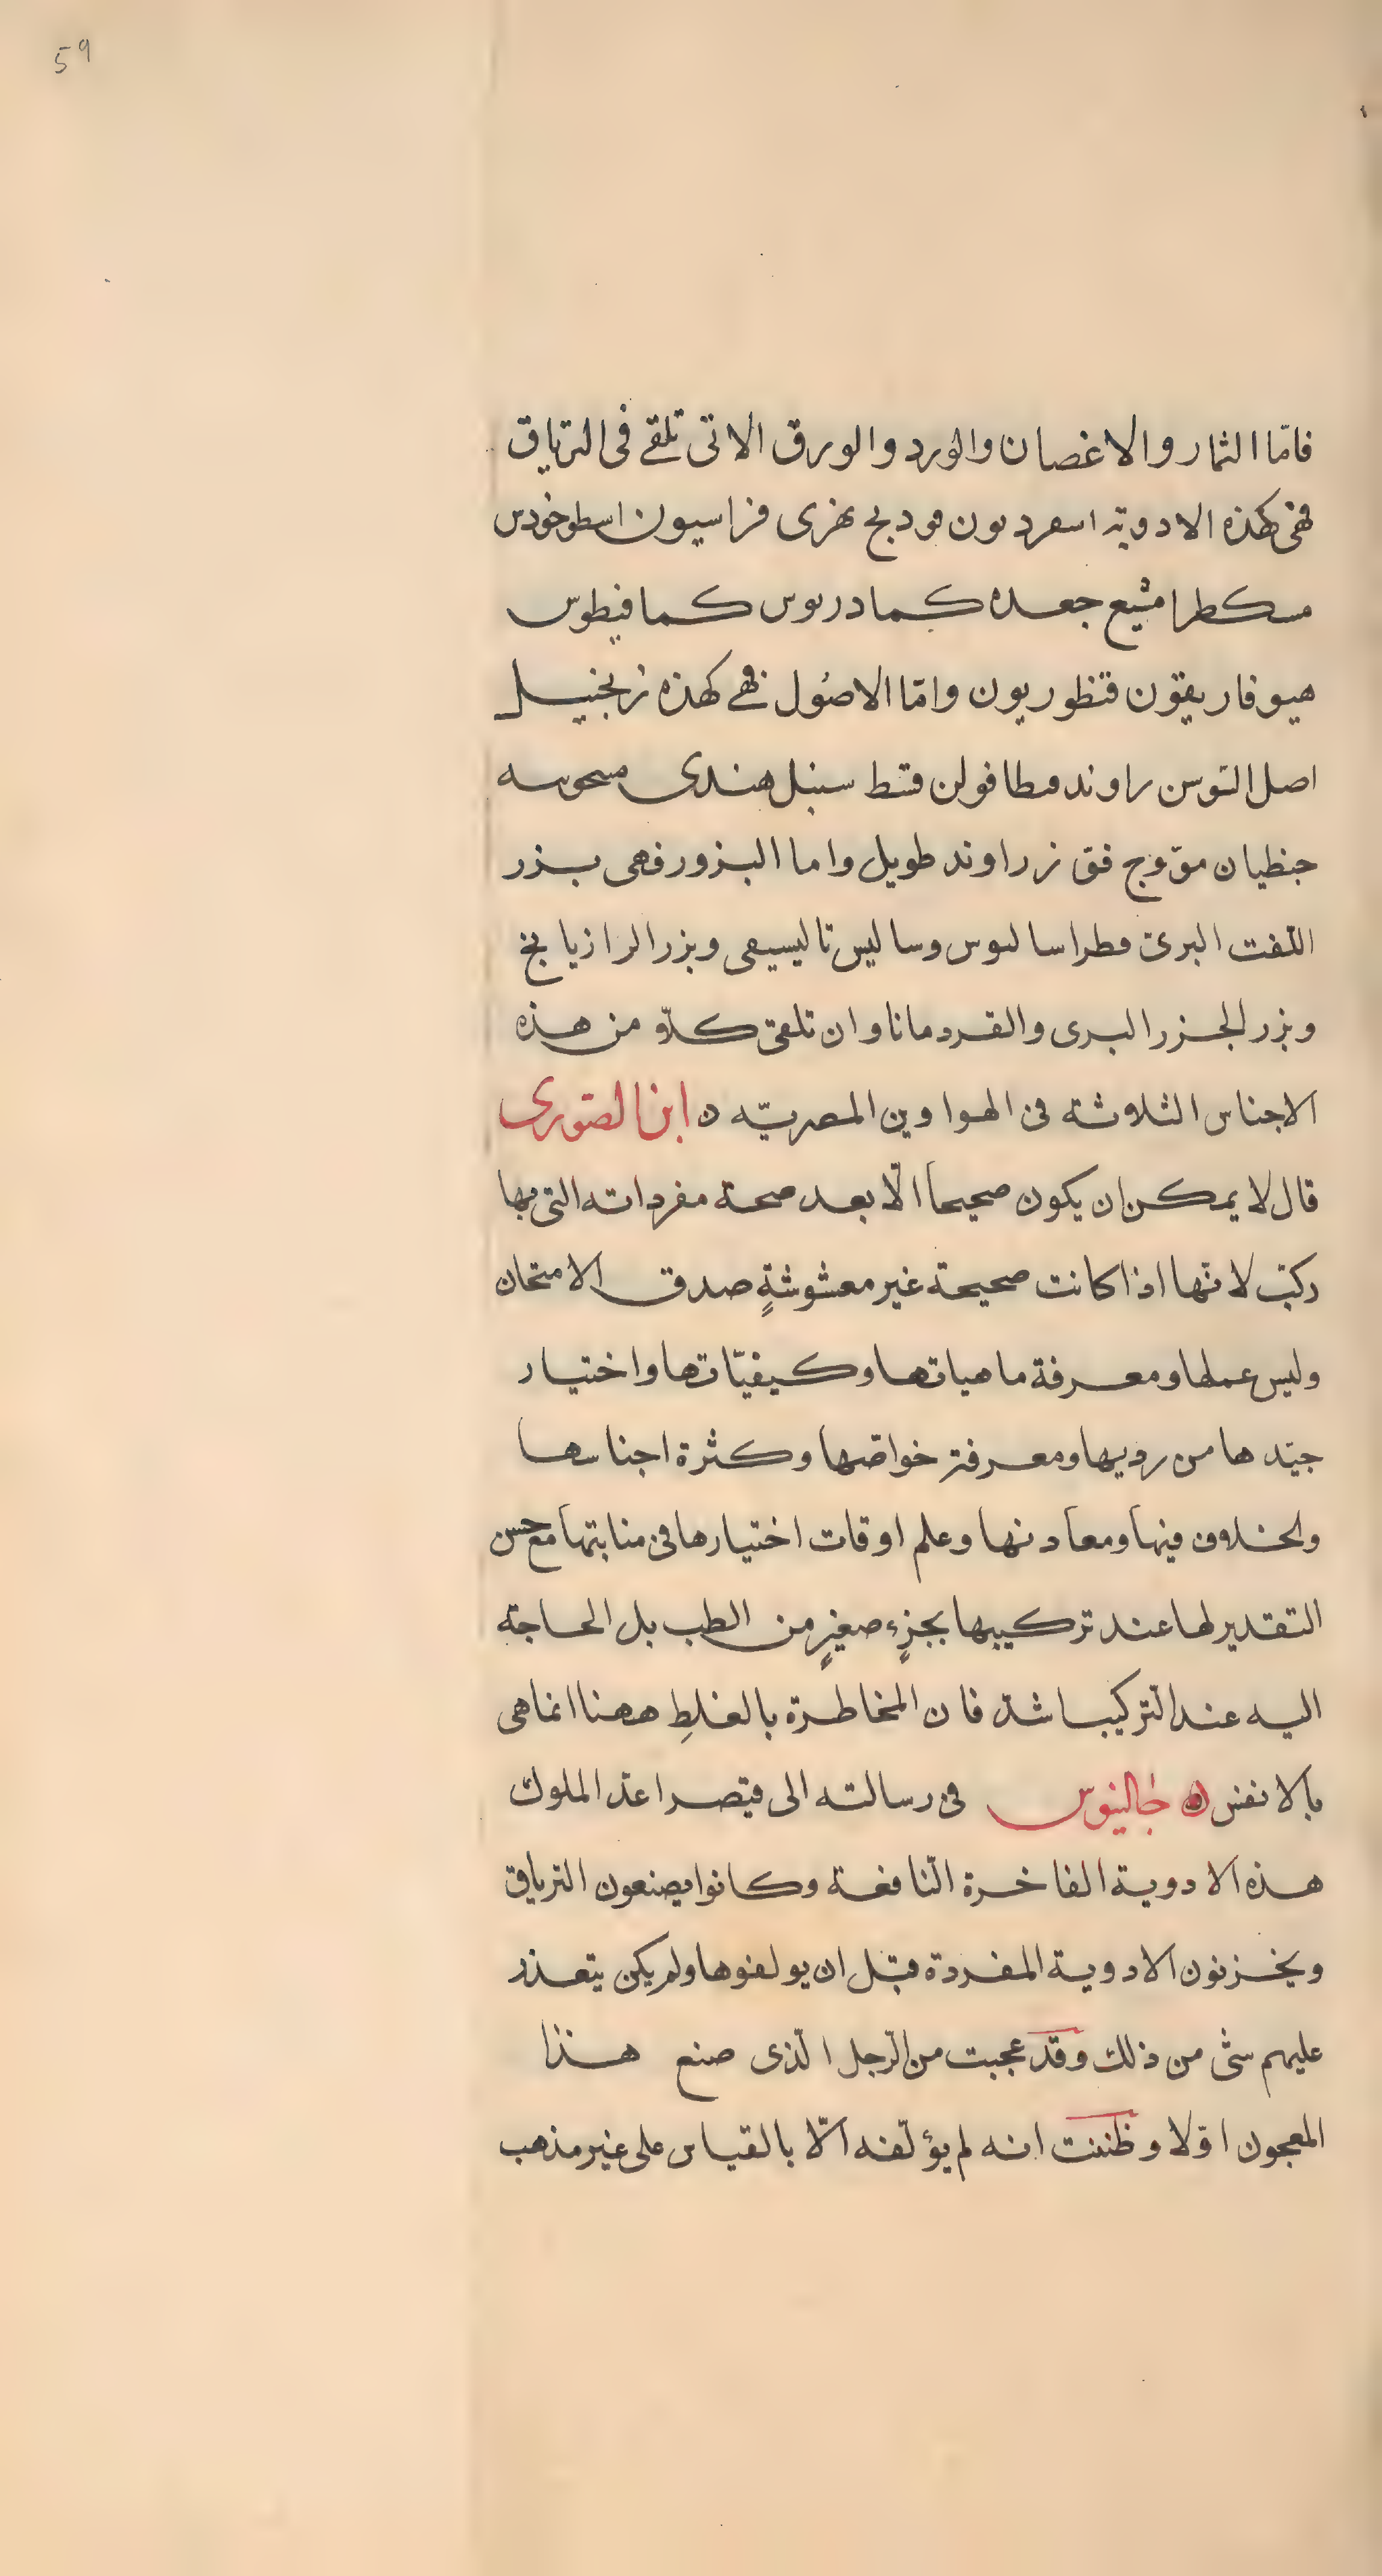 59
فامّا الثمار والاغصان والورد والورق الاتى تلقى فى الترياق
فهى كهذه الادوية اسعرديون فودنج نهرى فراسيون اسطوخودس
مسكطرامشيع جعده كمادريوس كمافيطوس
هيوفاريقون قنظوريون وامّا الاصُول فهى كهذه زنجنيل
اصل السّوسن راوند فطافولن قسط سنبل هندى
جنظيان موّ وج فق زراوند طويل واما البزور فهى بزر
اللّفت البرىّ فطراسالىوس وساليس تاليسيعى وبزر الرازيانج
وبزر الجزر البرى والقردمانا وان تلقى كلّاً من هذه
الاجناس الثلاثة فى الهواوين المصريّه ه ابن الصّورى
قال لا يمكن ان يكون صحيحاً الّا بعد صحة مفرداته التى بها
ركّبت لانّها اذا كانت صحيحة غير معشوشةٍ صدق الامتحان
وليس عملها ومعرفة ماهياتها وكيفيّاتها واختيار
جيّدها من رديها ومعرفة خواصّها وكثرة اجناسها
والخلاف فيها ومعادنها وعلم اوقات اختيارها فى منابتها مع حسن
التقدير لها عند تركيبها بجزءٍ صغيرٍ من الطب بل الحاجة
اليه عند التّركيب اشدّ فان المخاطرة بالغلطِ ههنا انما هى
بالانفس ه جالينوس فى رسالته الى قيصر اعدّ الملوك
هذه الادوية الفاخرة النّافعة وكانوا يصنعون الترياق
ويخزنون الادوية المفردة قبل ان يولفوها ولم يكن يتعذر
عليهم شى من ذلك وقد عجبت من الرّجل الّذى صنع هذا
المعجون اوّلا وظننت انه لم يؤلّفه الّا بالقياس على غير مذهب